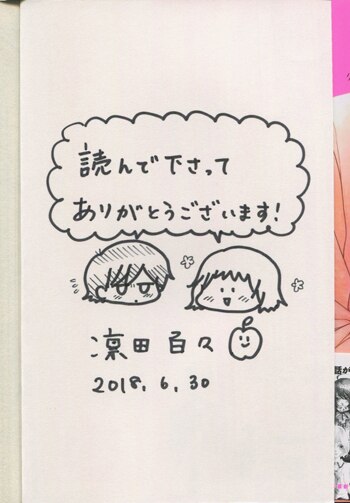 読んで下さって
ありがとうございます!
凛田百々
2018.6.30
話が